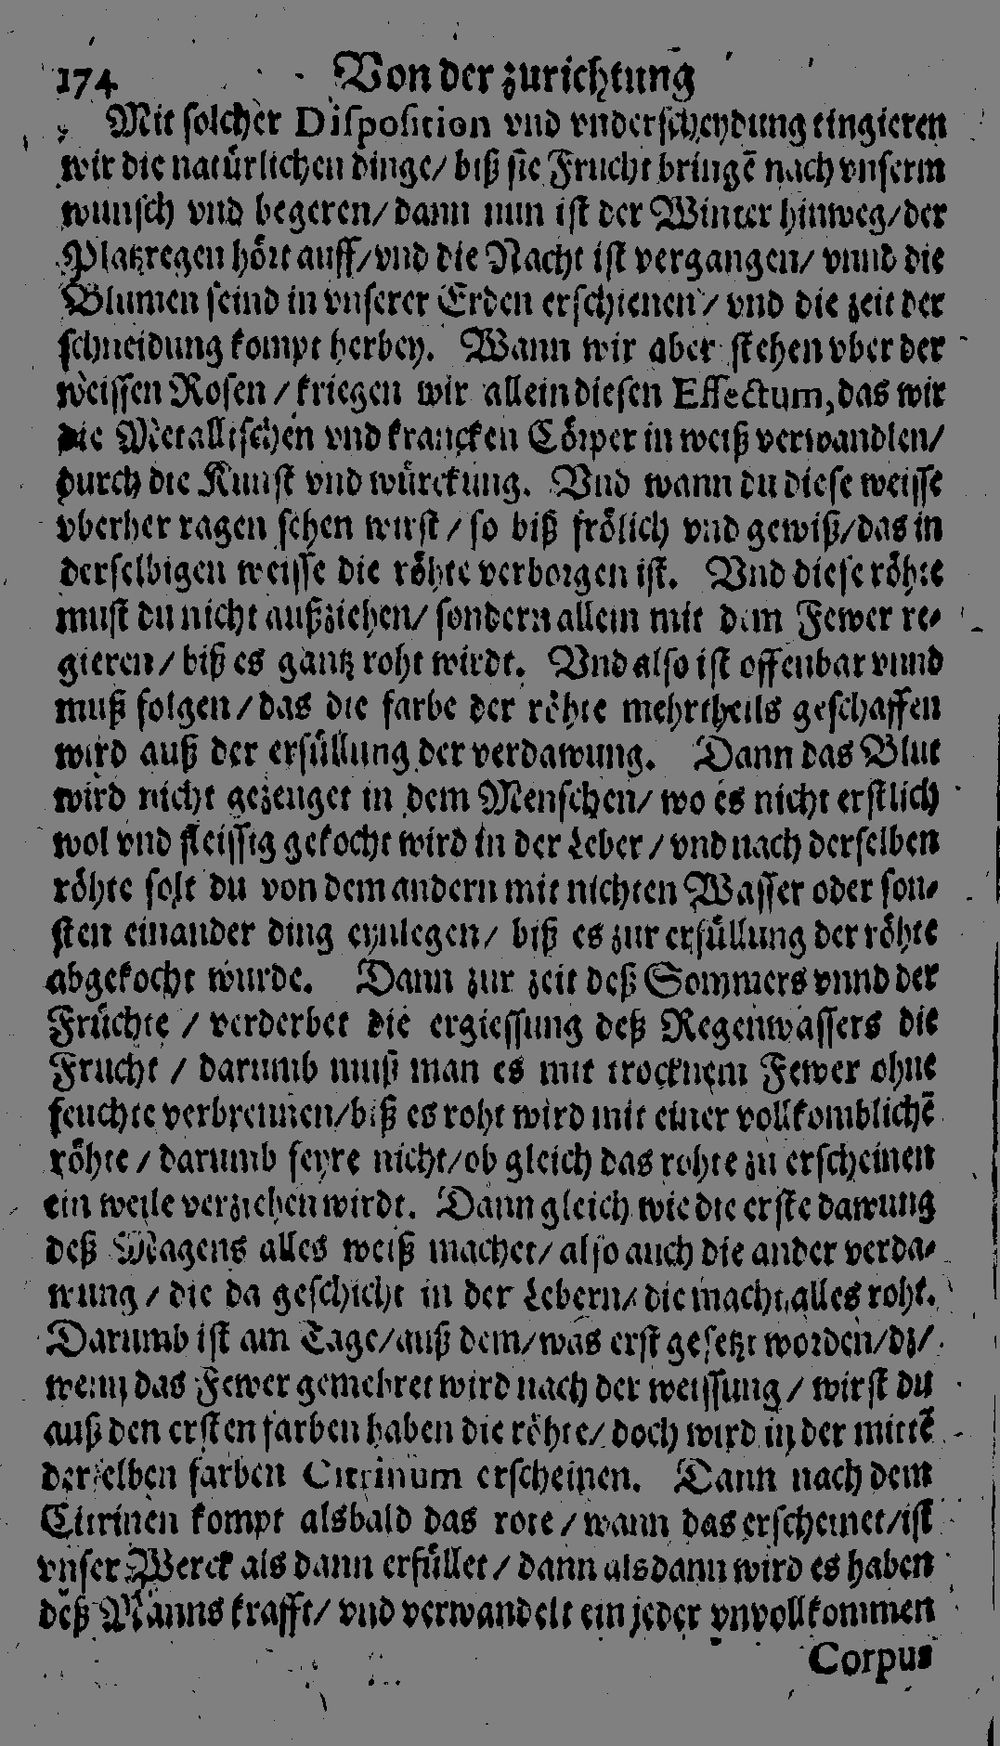 174 Von der zurichtung
Mit solcher Disposition vnd vnderscheydung tingieren
wir die natürlichen dinge/ biß sie Frucht bringē nach vnserm
wunsch vnd begeren/ dann nun ist der Winter hinweg/ der
Platzregen hört auff/ vnd die Nacht ist vergangen/ vnnd die
Blumen seind in vnserer Erden erschienen/ vnd die zeit der
schneidung kompt herbey. Wann wir aber stehen vber der
weissen Rosen/ kriegen wir allein diesen Effectum, das wir
die Metallischen vnd krancken Cörper in weiß verwandlen/
durch die Kunst vnd würckung. Vnd wann du diese weisse
vberher ragen sehen wirst/ so biß frölich vnd gewiß/ das in
derselbigen weisse die röhte verborgen ist. Vnd diese röhte
must du nicht außziehen/ sondern allein mit dem Fewer re-
gieren/ biß es gantz roht wirdt. Vnd also ist offenbar vnnd
muß folgen/ das die farbe der röhte mehrtheils geschaffen
wird auß der erfüllung der verdawung. Dann das Blut
wird nicht gezeuget in dem Menschen/ wo es nicht erstlich
wol vnd fleissig gekocht wird in der Leber/ vnd nach derselben
röhte solt du von dem andern mit nichten Wasser oder son-
sten einander ding eynlegen/ biß es zur erfüllung der röhte
abgekocht wurde. Dann zur zeit deß Sommers vnnd der
Früchte/ verderbet die ergiessung deß Regenwassers die
Frucht/ darumb muß man es mit trocknem Fewer ohne
feuchte verbrennen/ biß es roht wird mit einer vollkomblichē
röhte/ darumb feyre nicht/ ob gleich das rohte zu erscheinen
ein weile verziehen wirdt. Dann gleich wie die erste dawung
deß Magens alles weiß machet/ also auch die ander verda-
wung/ die da geschicht in der Lebern/ die macht alles roht.
Darumb ist am Tage/ auß dem/ was erst gesetzt worden/ dz/
wenn das Fewer gemehret wird nach der weissung/ wirst du
auß den ersten farben haben die röhte/ doch wird in der mittē
derselben farben Citrinum erscheinen. Dann nach dem
Citrinen kompt alsbald das rote/ wann das erscheinet/ ist
vnser Werck als dann erfüllet/ dann als dann wird es haben
deß Manns krafft/ vnd verwandelt ein jeder vnvollkommen
Corpus